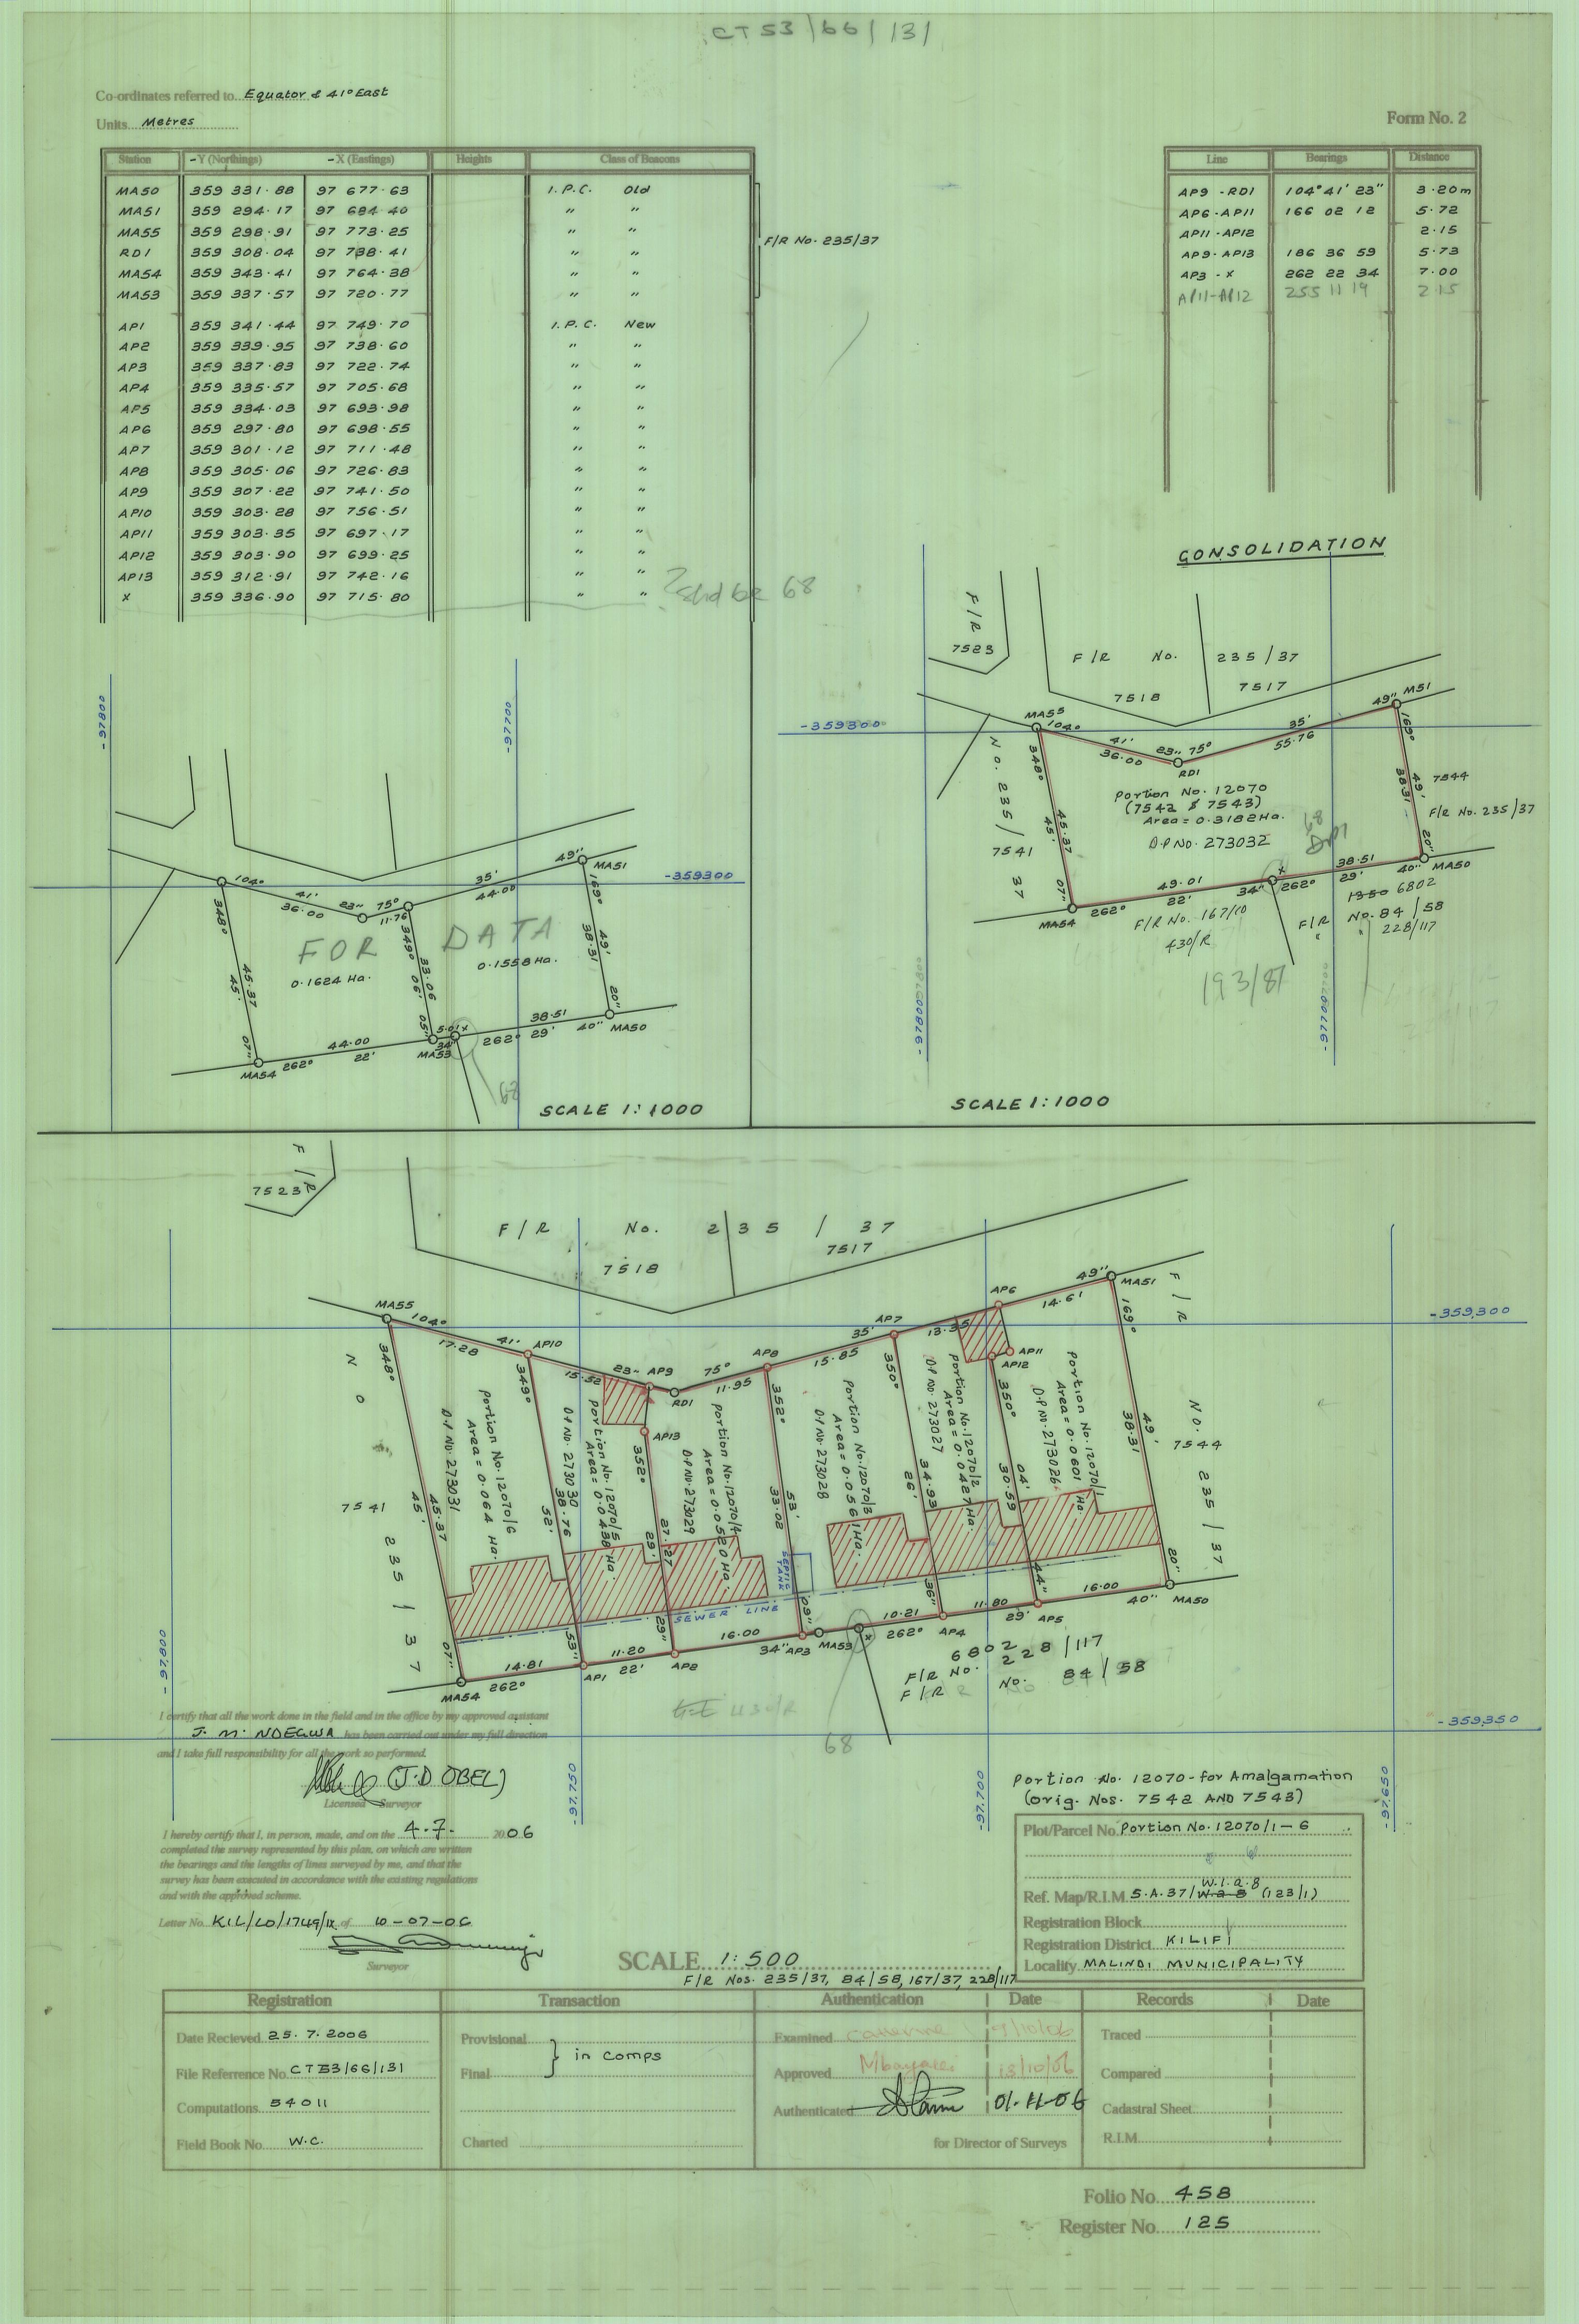 CT53/66/131
Co-ordinates referred to Equator & 41° East
Units Metres
Form No. 2
Station -Y (Northings) -X (Eastings) Heights Class of Beacons
MA50 359 331.88 97 677.63 I.P.C. Old
MA51 359 294.17 97 684.40 " "
MA55 359 298.91 97 773.25 " "
RD1 359 308.04 97 738.41 " "
MA54 359 343.41 97 764.38 " "
MA53 359 337.57 97 720.77 " "
F/R No. 235/37
AP1 359 341.44 97 749.70 I.P.C. New
AP2 359 339.95 97 738.60 " "
AP3 359 337.83 97 722.74 " "
AP4 359 335.57 97 705.68 " "
AP5 359 334.03 97 693.98 " "
AP6 359 297.80 97 698.55 " "
AP7 359 301.12 97 711.48 " "
AP8 359 305.06 97 726.83 " "
AP9 359 307.22 97 741.50 " "
AP10 359 303.28 97 756.51 " "
AP11 359 303.35 97 697.17 " "
AP12 359 303.90 97 699.25 " "
AP13 359 312.91 97 742.16 " "
X 359 336.90 97 715.80 " "
? Shd be 68
Line Bearings Distance
AP9 - RD1 104° 41' 23" 3.20m
AP6 - AP11 166 02 12 5.72
AP11 - AP12 2.15
AP9 - AP13 186 36 59 5.73
AP3 - X 262 22 34 7.00
AP11-AP12 255 11 19 2.15
CONSOLIDATION
F/R
7523
F/R No. 235/37
7518
7517
-359300
MA55
104°
41'
36.00
23"
75°
RD1
35'
55.76
49"
M51
169°
49'
38.31
20"
7544
F/R No. 235/37
MA50
348°
45.37
45'
07"
No. 235/37
7541
Portion No. 12070
(7542 & 7543)
Area = 0.3182 Ha.
D.P No. 273032
68
MA54
262°
49.01
22'
34"
x
262°
38.51
29'
40"
F/R No. 167/10
430/R
1350 6802
F/R No. 84/58
" 228/117
193/87
-97800
-97700
SCALE 1:1000
-97800
-97700
-359300
104°
41'
36.00
23"
75°
11.76
35'
44.00
49"
MA51
348°
45.37
45'
07"
349°
33.06
06'
05"
169°
49'
38.31
20"
FOR DATA
0.1624 Ha.
0.1558 Ha.
MA54
262°
44.00
22'
5.01
x
34"
MA53
262°
38.51
29'
40"
MA50
68
SCALE 1:1000
F/R
7523
F/R No. 235/37
7518
7517
MA55
104°
17.28
41'
AP10
15.52
23"
AP9
RD1
75°
11.95
AP8
15.85
35'
AP7
13.35
AP6
14.61
49"
MA51
-359,300
AP11
AP12
AP13
F/R
No. 235/37
7544
No
7541
235/37
348°
45.37
45'
07"
349°
38.76
52'
53"
352°
27.27
29'
29"
352°
53'
33.02
09"
350°
34.93
26'
36"
350°
04'
30.59
44"
169°
49'
38.31
20'
Portion No. 12070/6
Area = 0.064 Ha.
D.P No. 273031
Portion No. 12070/5
Area = 0.0438 Ha.
D.P No. 273030
Portion No. 12070/4
Area = 0.0520 Ha.
D.P No. 273029
Portion No. 12070/3
Area = 0.0561 Ha.
D.P No. 273028
Portion No. 12070/2
Area = 0.0427 Ha.
D.P No. 273027
Portion No. 12070/1
Area = 0.0601 Ha.
D.P No. 273026
SEPTIC TANK
SEWER LINE
MA54
262°
14.81
AP1
11.20
22'
AP2
16.00
34"
AP3
MA53
x
262°
10.21
AP4
11.80
29'
AP5
16.00
40"
MA50
6802
F/R No. 228/117
F/R No. 84/58
430/R
68
-359,350
-97,800
-97,750
-97,700
-97,650
I certify that all the work done in the field and in the office by my approved assistant
J. M. NDEGWA has been carried out under my full direction
and I take full responsibility for all the work so performed.
(J.D OBEL)
Licensed Surveyor
I hereby certify that I, in person, made, and on the 4.7. 2006
completed the survey represented by this plan, on which are written
the bearings and the lengths of lines surveyed by me, and that the
survey has been executed in accordance with the existing regulations
and with the approved scheme.
Letter No. KIL/LO/1749/IX of 10-07-06
Surveyor
SCALE 1:500
F/R Nos. 235/37, 84/58, 167/37, 228/117
Portion No. 12070 - for Amalgamation
(orig. Nos. 7542 AND 7543)
Plot/Parcel No. Portion No. 12070/1-6
W.1.a.8
Ref. Map/R.I.M. S.A.37/W a 8 (123/1)
Registration Block
Registration District KILIFI
Locality MALINDI MUNICIPALITY
Registration Transaction Authentication Date Records Date
Date Recieved 25.7.2006
File Referrence No. CT53/66/131
Computations 54011
Field Book No. W.C.
Provisional
Final
} in comps
Charted
Examined Catherine 9/10/06
Approved 13/10/06
Authenticated 01-11-06
for Director of Surveys
Traced
Compared
Cadastral Sheet
R.I.M.
Folio No. 458
Register No. 125